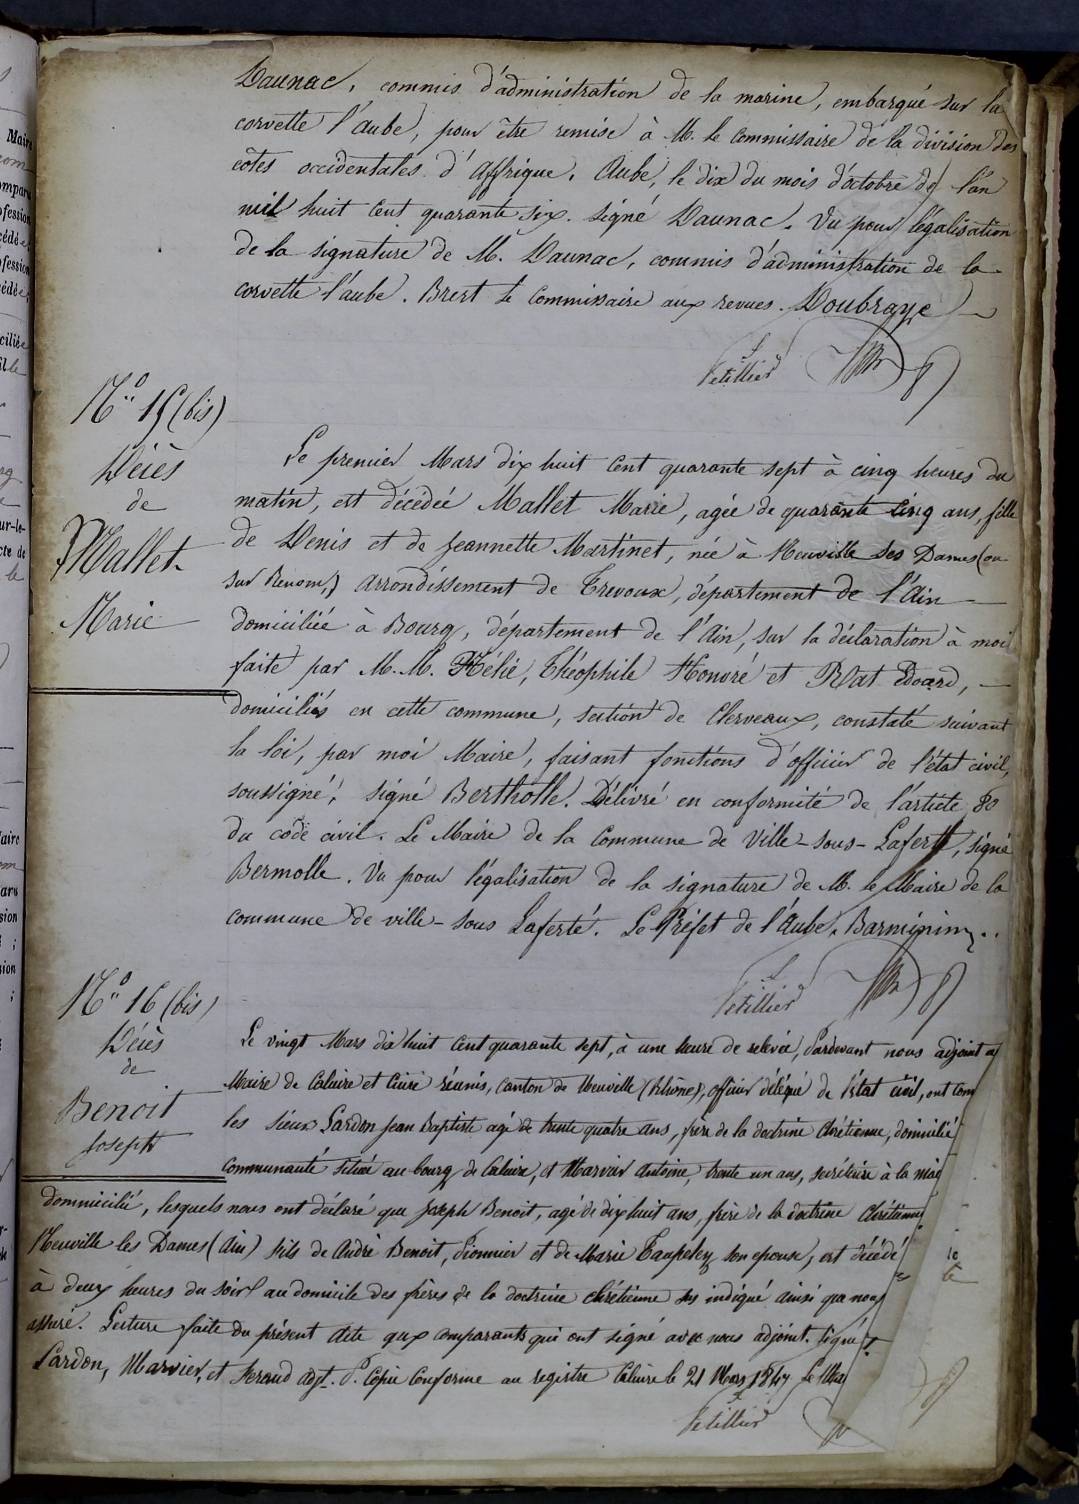 Daunac, commis d'administration de la marine, embarqué sur la
corvette l'aube, pour être remise à M. le Commissaire de la division des
côtes occidentales d'Affrique. Aube, le dix du mois d'octobre de l'an
mil huit cent quarante six. Signé Daunac. Vu pour légalisation
de la signature de M. Daunac, commis d'administration de la
corvette l'aube. Brest le Commissaire aux revues. Doubraye
Letillier
N° 15 (bis)
Décès
de
Mallet
Marie
Le premier Mars dix huit cent quarante sept à cinq heures du
matin, est décédée Mallet Marie, agée de quarante cinq ans, fille
de Denis et de Jeannette Martinet, née à Neuville les Dames (ou
sur Renom,) arrondissement de Trevoux, département de l'Ain
domiciliée à Bourg, département de l'Ain, sur la déclaration à moi
faite par M.M. Hélié, Théophile Honoré et Rat Edoard,
domiciliés en cette commune, section de Clerveaux, constaté suivant
la loi, par moi Maire, faisant fonctions d'officier de l'état civil,
soussigné, signé Bertholle. Délivré en conformité de l'article 80
du code civil. Le Maire de la Commune de Ville-sous-Laferté, signé
Bermolle. Vu pour légalisation de la signature de M. le Maire de la
commune de ville-sous Laferté. Le Préfet de l'Aube.
Letillier
N° 16 (bis)
Décès
de
Benoit
Joseph
Le vingt Mars dix huit cent quarante sept, à une heure de relevée, Pardevant nous adjoint a
Maire de Caluire et Cuire réunis, canton de Neuville (Rhône), officier délégué de l'état civil, ont com
les sieurs Lardon Jean Baptiste agé de trente quatre ans, frère de la doctrine chrétienne, domicilié
Communauté située au bourg de Caluire, et Marvier Antoine, trente un ans, secrétaire à la mai
domicilié, lesquels nous ont déclaré que Joseph Benoit, agé de dix huit ans, frère de la doctrine chrétienne
Neuville les Dames (Ain) fils de André Benoit, et de Marie son epouse, est décédé
à deux heures du soir au domicile des frères de la doctrine chrétienne indiqué ainsi que nous
assuré. Lecture faite du présent acte aux comparants qui ont signé avec nous adjoint. Signé
Lardon, Marvier, et adjt. Pr. Copie Conforme au registre Caluire le 21 Mars 1847 Le Mai
Letillier